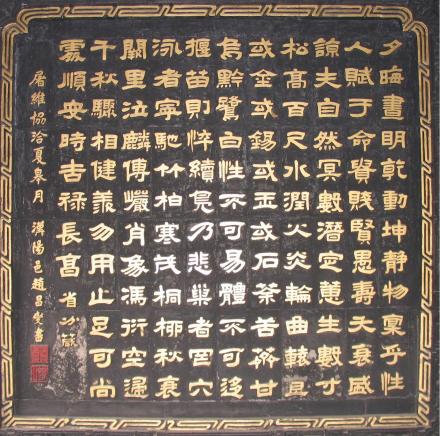 夕晦晝明乾動坤静物稟乎性
人賦于命貴賤賢愚壽夭衰盛
諒夫自然冥數潛定蕙生數寸
松高百尺水潤火炎輪曲轅直
或金或錫或玉或石荼苦薺甘
烏黔鷺白性不可易體不可迻
揠苗則悴續鳧乃悲巢者罔穴
泳者寧馳竹柏寒茂桐柳秋衰
闕里泣麟傅巖肖象馮衍空歸
千秋驟相健羨勿用止足可尚
處順安時吉禄長亯 省分箴
屠維協洽夏皋月 漢陽邑趙昌書